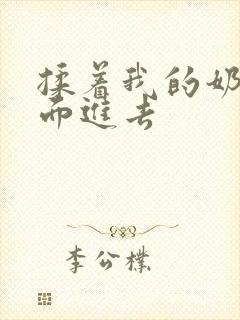 揉着我的奶
而进去
李公樸